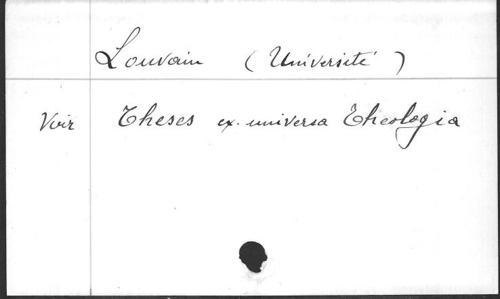 Louvain (Université)
Voir Theses ex. universa Theologia